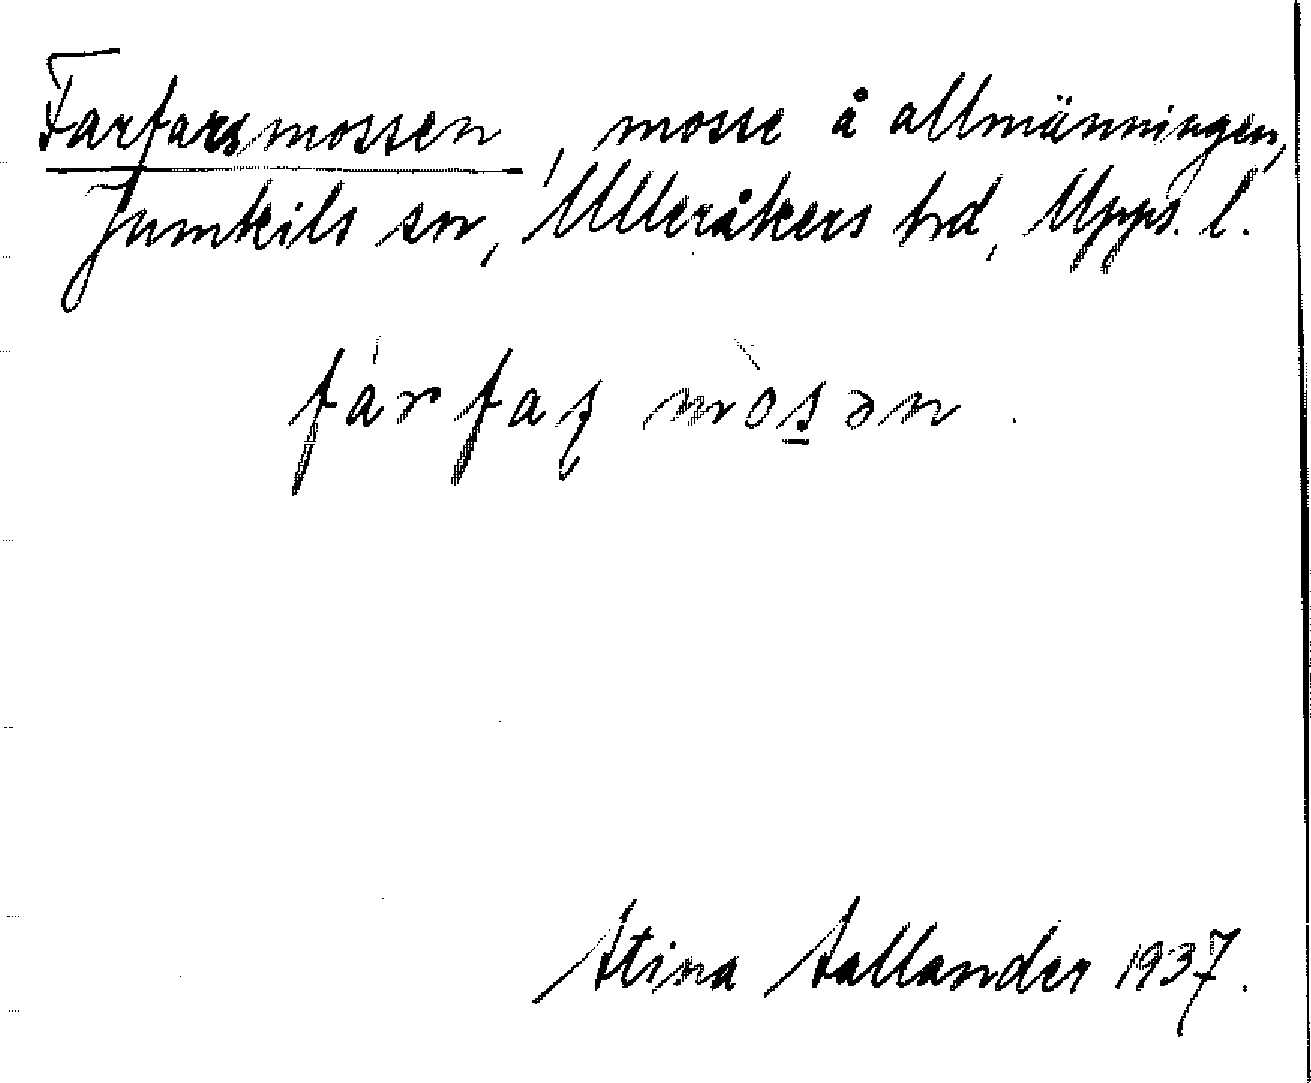 Farfarsmossen, mosse å allmänningen,
Jumkils sn, Ulleråkers hd, Upps. l.
fárfaʂ mòs̲ən.
Stina Sallander 1937.